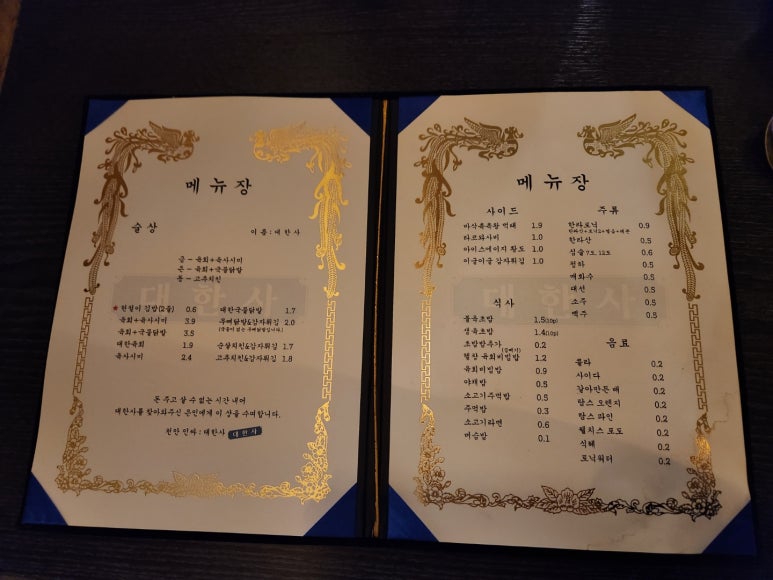 메뉴장
술상
이름 : 대한사
금 - 육회+육사시미
은 - 육회+국물닭발
동 - 고추치킨
대한사
★ 헌철이 김밥(2줄) 0.6
육회+육사시미 3.9
육회+국물닭발 3.5
대한육회 1.9
육사시미 2.4
대한국물닭발 1.7
무뼈닭발&감자튀김 2.0
(국물이 없는 무뼈닭발입니다)
순살치킨&감자튀김 1.7
고추치킨&감자튀김 1.8
돈 주고 살 수 없는 시간 내어
대한사를 찾아와주신 은인에게 이 상을 수여합니다.
천안 민싸 : 대한사 대한사
메뉴장
사이드
바삭촉촉왕 먹태 1.9
타코와사비 1.0
아이스에이지 황도 1.0
이글이글 감자튀김 1.0
대한사
식사
불육초밥 1.5(10p)
생육초밥 1.4(10p)
초밥밥추가 0.2
육회비빔밥 1.2
육회비빔밥 0.9
야채밥 0.5
소고기주먹밥 0.5
주먹밥 0.3
소고기라면 0.6
머슴밥 0.1
주류
한라토닉 0.9
한라산 0.5
심술 7도, 12도 0.6
청하 0.5
매화수 0.5
대선 0.5
소주 0.5
맥주 0.5
음료
콜라 0.2
사이다 0.2
갈아만든 배 0.2
탐스 오렌지 0.2
탐스 파인 0.2
웰치스 포도 0.2
식혜 0.2
토닉워터 0.2